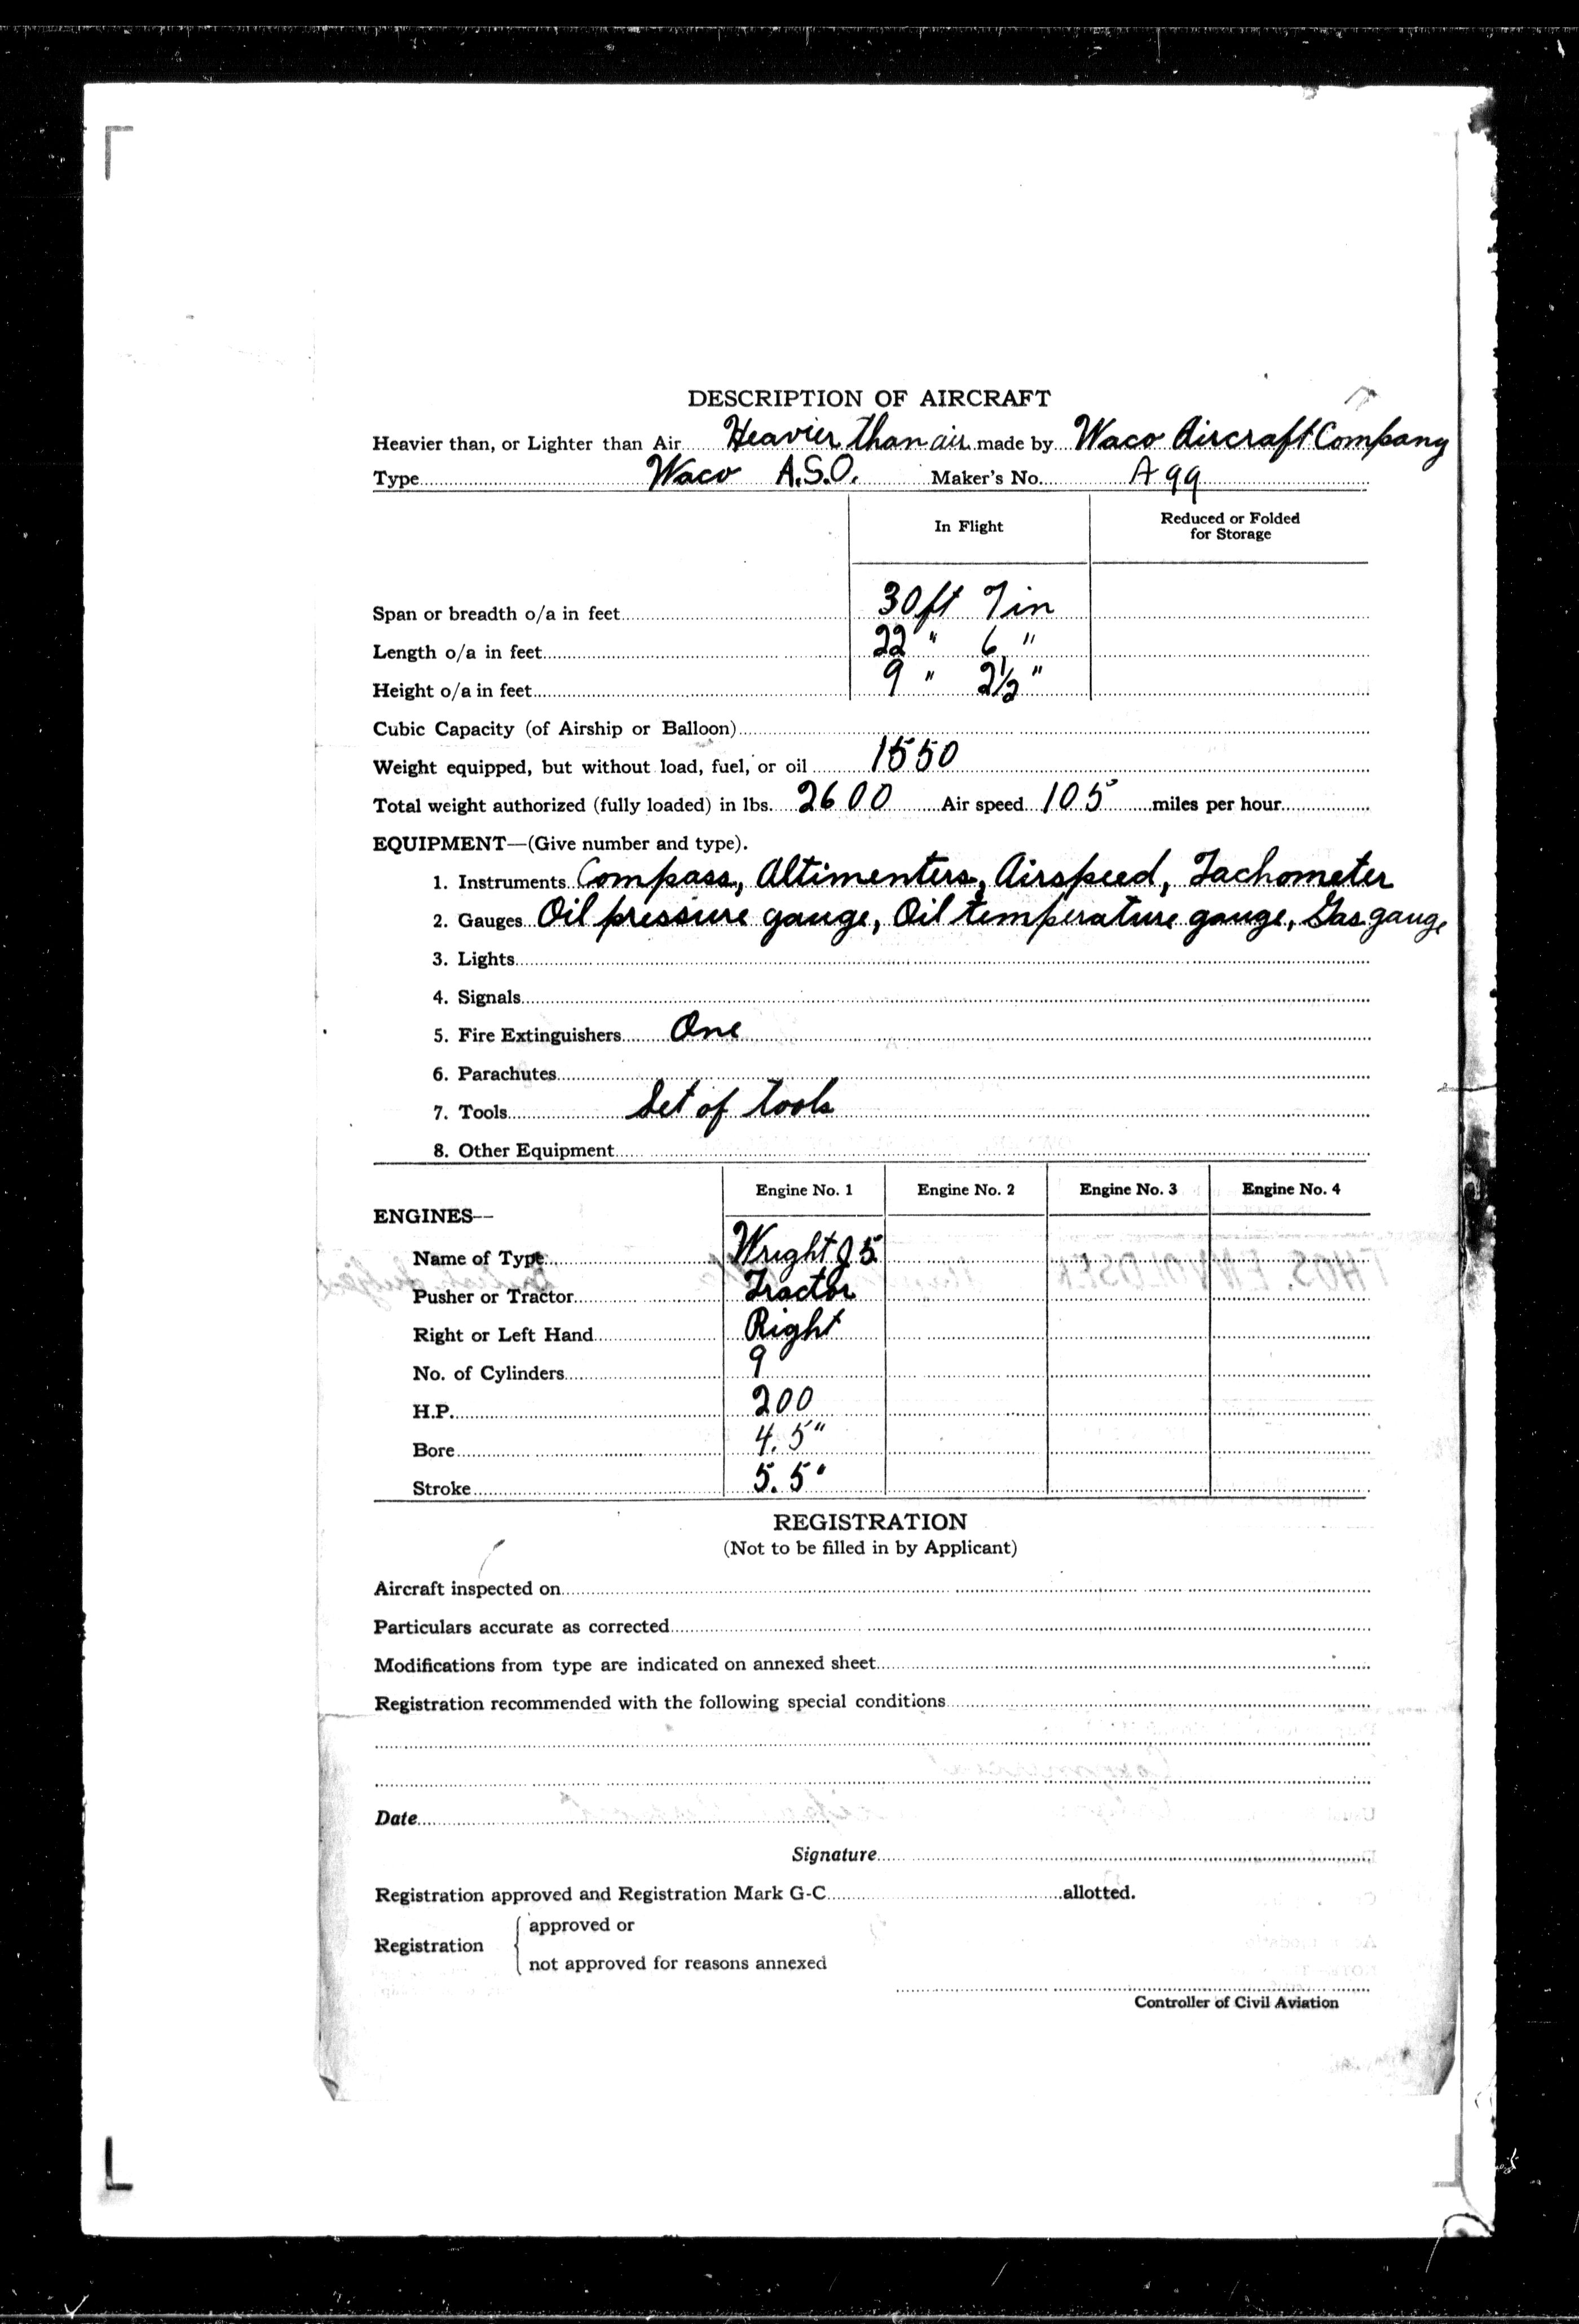 DESCRIPTION OF AIRCRAFT
Heavier than, or Lighter than Air Heavier than air made by Waco Aircraft Company
Type Waco A.S.O. Maker's No. A 99
In Flight Reduced or Folded
for Storage
Span or breadth o/a in feet 30 ft 7 in
Length o/a in feet 22 " 6 "
Height o/a in feet 9 " 2½ "
Cubic Capacity (of Airship or Balloon)
Weight equipped, but without load, fuel, or oil 1550
Total weight authorized (fully loaded) in lbs. 2600 Air speed 105 miles per hour
EQUIPMENT—(Give number and type).
1. Instruments Compass, Altimenters, Airspeed, Tachometer
2. Gauges Oil pressure gauge, Oil temperature gauge, Gas gauge
3. Lights
4. Signals
5. Fire Extinguishers One
6. Parachutes
7. Tools Set of tools
8. Other Equipment
Engine No. 1 Engine No. 2 Engine No. 3 Engine No. 4
ENGINES—
Name of Type Wright J5
Pusher or Tractor Tractor
Right or Left Hand Right
No. of Cylinders 9
H.P. 200
Bore 4.5"
Stroke 5.5"
REGISTRATION
(Not to be filled in by Applicant)
Aircraft inspected on
Particulars accurate as corrected
Modifications from type are indicated on annexed sheet
Registration recommended with the following special conditions
Date
Signature
Registration approved and Registration Mark G-C allotted.
Registration { approved or
not approved for reasons annexed
Controller of Civil Aviation